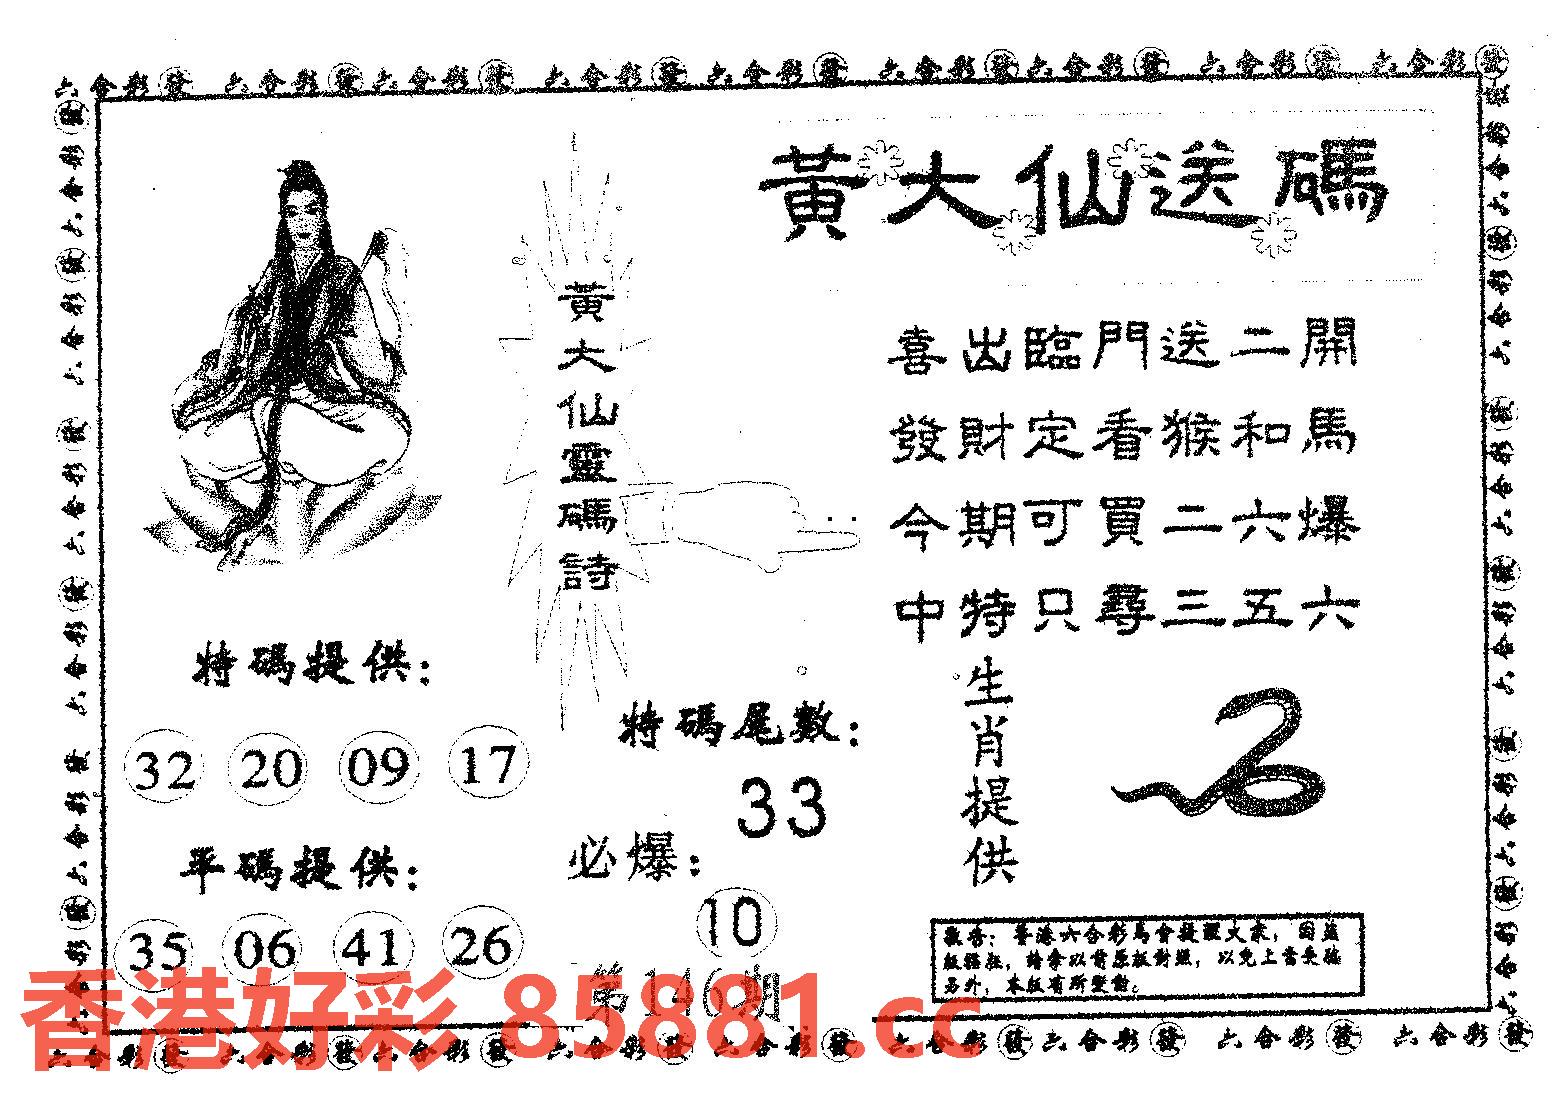 六合彩發 六合彩發 六合彩發 六合彩發 六合彩發 六合彩發 六合彩發 六合彩發 六合彩發
黃大仙送碼
黃大仙靈碼詩
喜出臨門送二開
發財定看猴和馬
今期可買二六爆
中特只尋三五六
特碼提供：
32 20 09 17
平碼提供：
35 06 41 26
特碼尾數：
33
必爆：
10
第146期
生肖提供
敬告：香港六合彩馬會提醒大家，因盜
版猖狂，請拿以前原版對照，以免上當受騙
另外，本版有所變動。
香港好彩 85881.cc
六合彩發 六合彩發 六合彩發 六合彩發 六合彩發 六合彩發 六合彩發 六合彩發